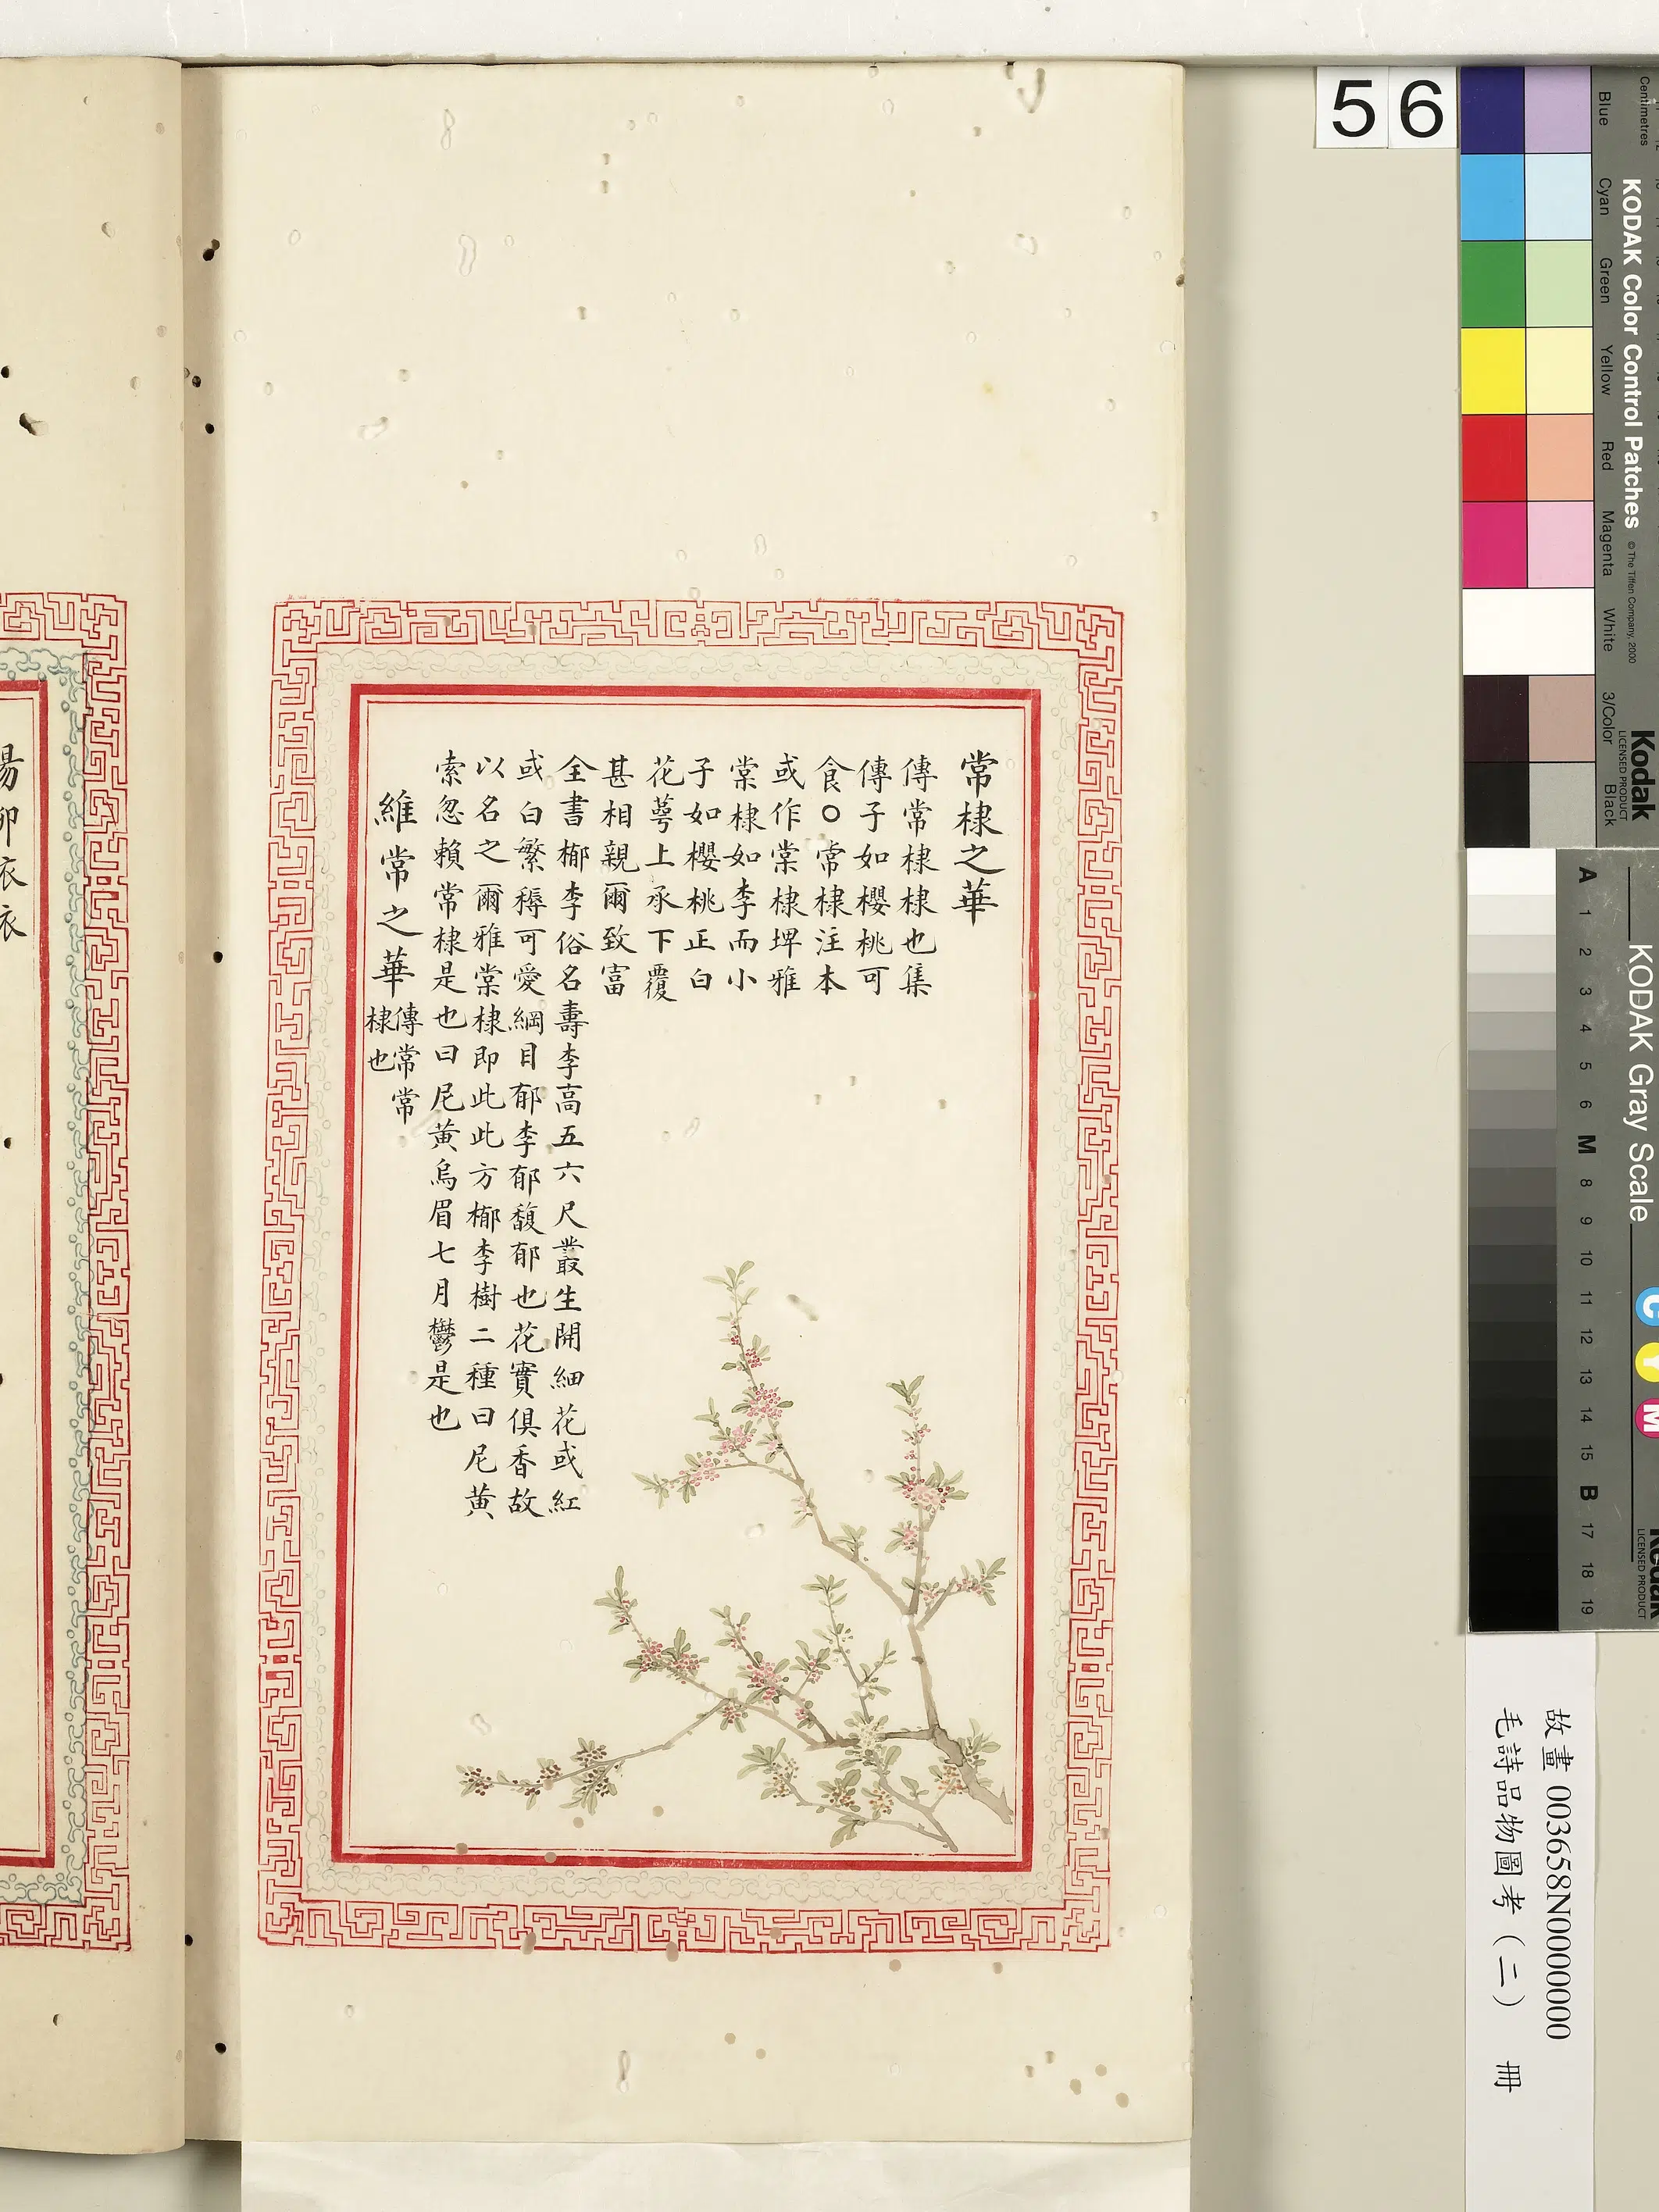 常棣之華
傳常棣棣也集
傳子如櫻桃可
食○常棣注本
或作棠棣埤雅
棠棣如李而小
子如櫻桃正白
花萼上承下覆
甚相親爾致富
全書㮋李俗名壽李高五六尺叢生開細花或紅
或白繁縟可愛綱目郁李郁馥郁也花實俱香故
以名之爾雅棠棣即此此方㮋李樹二種曰尼黃
索忽賴常棣是也曰尼黃烏眉七月鬱是也
維常之華
傳常常
棣也
衣
衣
56
Centimetres
Blue
Cyan
Green
Yellow
Red
Magenta
White
3/Color
Black
KODAK Color Control Patches
© The Tiffen Company, 2000
Kodak
LICENSED PRODUCT
KODAK Gray Scale
A 1 2 3 4 5 6 M 8 9 10 11 12 13 14 15 B 17 18 19
C
Y
M
Kodak
LICENSED PRODUCT
故畫 003658N000000
毛詩品物圖考（二） 冊